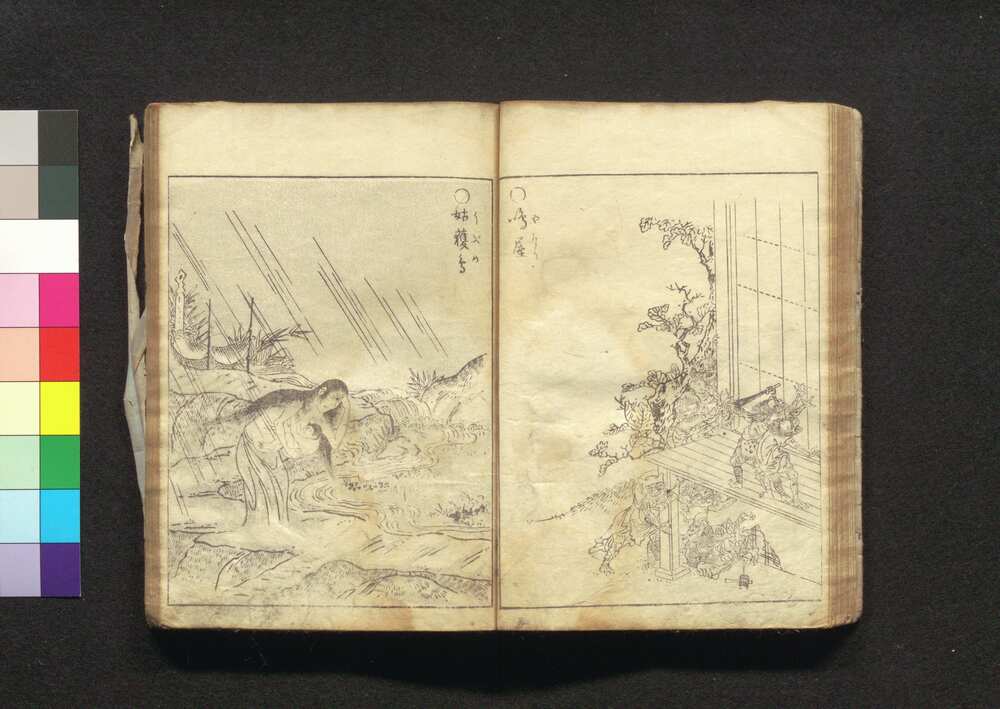 ○鳴屋
やなり
○姑獲鳥
うぶめ